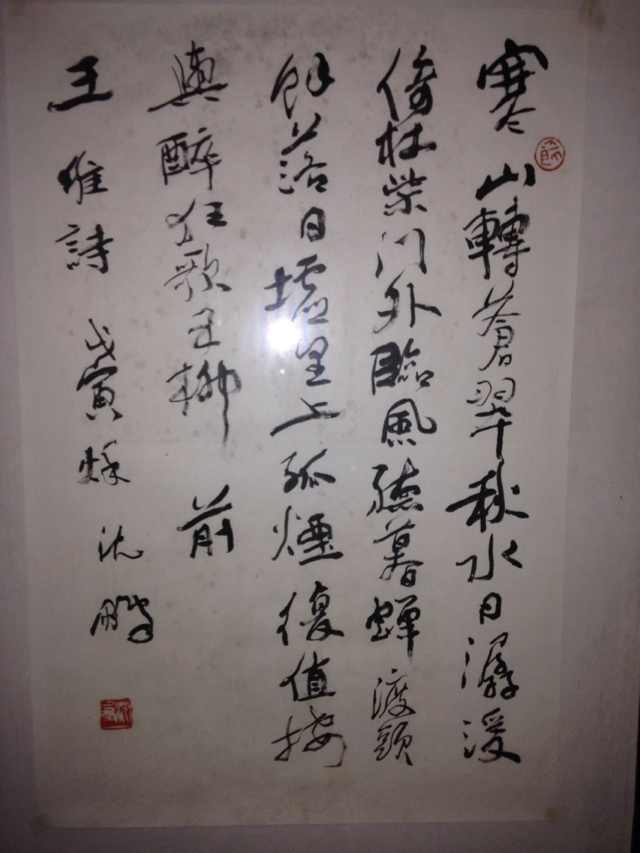 寒山轉蒼翠秋水日潺湲
倚杖柴門外臨風聽暮蟬渡頭
餘落日墟里上孤煙復值接
輿醉狂歌五柳前
王維詩 戊寅秋 沈鵬